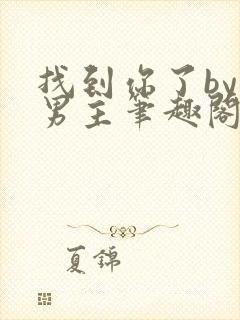 找到你了by
男主笔趣阁
夏錦